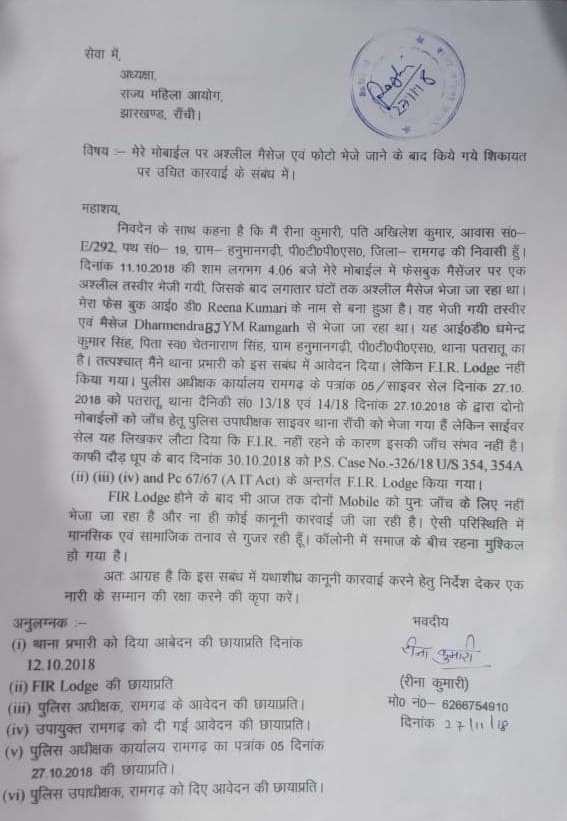 सेवा में,
अध्यक्षा,
राज्य महिला आयोग,
झारखण्ड, राँची।
27/11/18
विषय :– मेरे मोबाईल पर अश्लील मैसेज एवं फोटो भेजे जाने के बाद किये गये शिकायत
पर उचित कारवाई के संबंध में।
महाशय,
निवदेन के साथ कहना है कि मैं रीना कुमारी, पति अखिलेश कुमार, आवास सं०–
E/292, पथ सं०– 19, ग्राम– हनुमानगढ़ी, पी०टी०पी०एस०, जिला– रामगढ़ की निवासी हूँ।
दिनांक 11.10.2018 की शाम लगभग 4.06 बजे मेरे मोबाईल में फेसबुक मैसेंजर पर एक
अश्लील तस्वीर भेजी गयी, जिसके बाद लगातार घंटों तक अश्लील मैसेज भेजा जा रहा था।
मेरा फेस बुक आई० डी० Reena Kumari के नाम से बना हुआ है। वह भेजी गयी तस्वीर
एवं मैसेज DharmendraBJYM Ramgarh से भेजा जा रहा था। यह आई०डी० धमेन्द्र
कुमार सिंह, पिता स्व० चेतनाराण सिंह, ग्राम हनुमानगढ़ी, पी०टी०पी०एस०, थाना पतरातू का
है। तत्पश्चात् मैंने थाना प्रभारी को इस सबंध में आवेदन दिया। लेकिन F.I.R. Lodge नहीं
किया गया। पुलीस अधीक्षक कार्यालय रामगढ़ के पत्रांक 05/साइवर सेल दिनांक 27.10.
2018 को पतरातू, थाना दैनिकी सं० 13/18 एवं 14/18 दिनांक 27.10.2018 के द्वारा दोनो
मोबाईलों को जाँच हेतु पुलिस उपाधीक्षक साइवर थाना राँची को भेजा गया हैं लेकिन साईवर
सेल यह लिखकर लौटा दिया कि F.I.R. नहीं रहने के कारण इसकी जाँच संभव नहीं है।
काफी दौड़ धूप के बाद दिनांक 30.10.2018 को P.S. Case No.-326/18 U/S 354, 354A
(ii) (iii) (iv) and Pc 67/67 (A IT Act) के अन्तर्गत F.I.R. Lodge किया गया।
FIR Lodge होने के बाद भी आज तक दोनों Mobile को पुनः जाँच के लिए नहीं
भेजा जा रहा है और ना ही कोई कानूनी कारवाई जी जा रही है। ऐसी परिस्थिति में
मानसिक एवं सामाजिक तनाव से गुजर रही हूँ। कॉलोनी में समाज के बीच रहना मुश्किल
हो गया है।
अतः आग्रह है कि इस सबंध में यथाशीघ्र कानूनी कारवाई करने हेतु निर्देश देकर एक
नारी के सम्मान की रक्षा करने की कृपा करें।
अनुलग्नक :–
(i) थाना प्रभारी को दिया आबेदन की छायाप्रति दिनांक
12.10.2018
(ii) FIR Lodge की छायाप्रति
(iii) पुलिस अधीक्षक, रामगढ के आवेदन की छायाप्रति।
(iv) उपायुक्त रामगढ़ को दी गई आवेदन की छायाप्रति।
(v) पुलिस अधीक्षक कार्यालय रामगढ़ का पत्रांक 05 दिनांक
27.10.2018 की छायाप्रति।
(vi) पुलिस उपाधीक्षक, रामगढ़ को दिए आवेदन की छायाप्रति।
भवदीय
रीना कुमारी
(रीना कुमारी)
मो० नं०– 6266754910
दिनांक 27/11/18